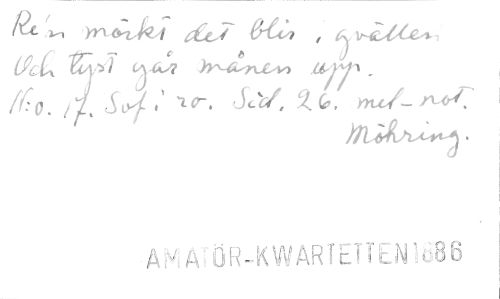 Re'n mörkt det blir i qvällen
Och tyst går månen upp.
N:o. 17. Sof i ro. Sid. 26. mel-not.
Möhring.
AMATÖR-KWARTETTEN 1886